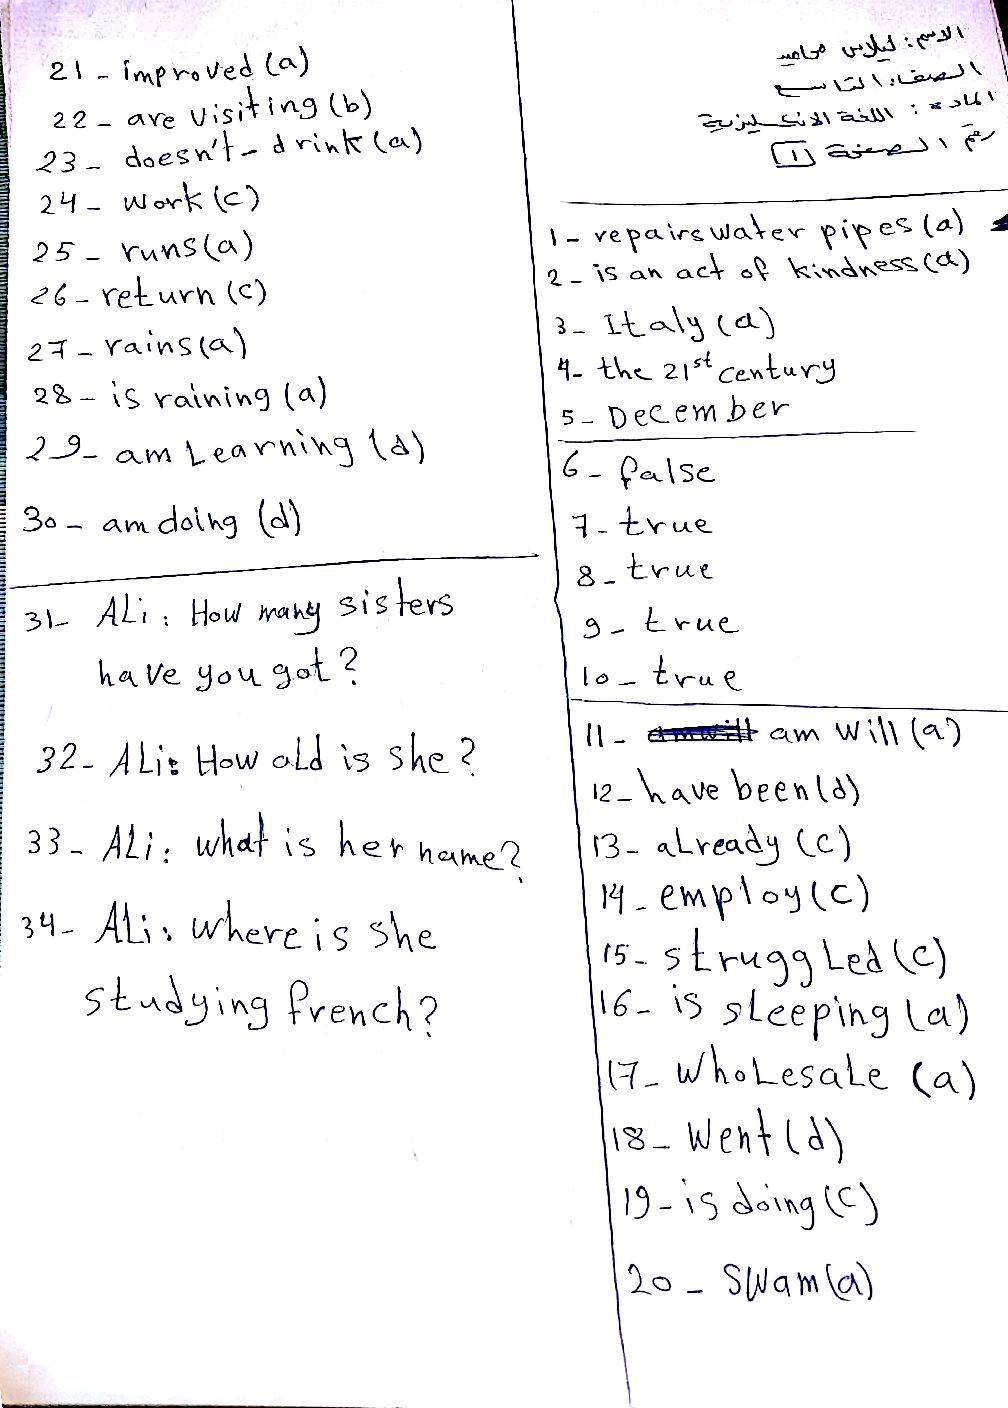 الاسم: ليلاس محاميد
الصف: التاسع
المادة: اللغة الانكليزية
رقم الصفحة [1]
1- repairs water pipes (a)
2- is an act of kindness (d)
3- Italy (a)
4- the 21st century
5- December
6- false
7- true
8- true
9- true
10- true
11- am will (a)
12- have been (d)
13- already (c)
14- employ (c)
15- struggled (c)
16- is sleeping (a)
17- wholesale (a)
18- went (d)
19- is doing (c)
20- swam (a)
21- improved (a)
22- are visiting (b)
23- doesn't-drink (a)
24- work (c)
25- runs (a)
26- return (c)
27- rains (a)
28- is raining (a)
29- am Learning (d)
30- am doing (d)
31- Ali: How many sisters
have you got?
32- Ali: How old is she?
33- Ali: what is her name?
34- Ali: where is she
studying french?